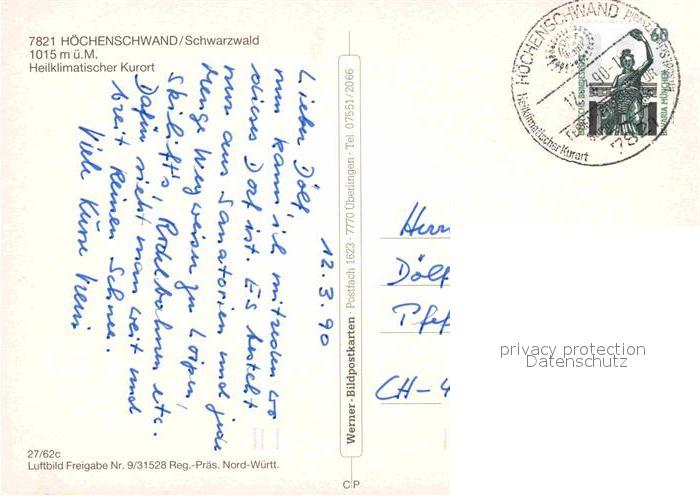 7821 HÖCHENSCHWAND/Schwarzwald
1015 m ü.M.
Heilklimatischer Kurort
12.3.90
Lieber Dölf,
nun kann ich mitreden wo
dieses Dorf ist. Es besteht
nur aus Sanatorien und jede
Menge Wegweiser zu Loipen,
Skilifts, Rodelbahnen etc.
Dafür sieht man weit und
breit keinen Schnee.
Viele Küsse
27/62c
Luftbild Freigabe Nr. 9/31528 Reg.-Präs. Nord-Württ.
Werner-Bildpostkarten · Postfach 1623 · 7770 Überlingen · Tel. 07551/2066
C P
HÖCHENSCHWAND
Heilklimatischer Kurort
60
DEUTSCHE BUNDESPOST
BAVARIA MÜNCHEN
Herr
Dölf
Pfef
CH-4
privacy protection
Datenschutz